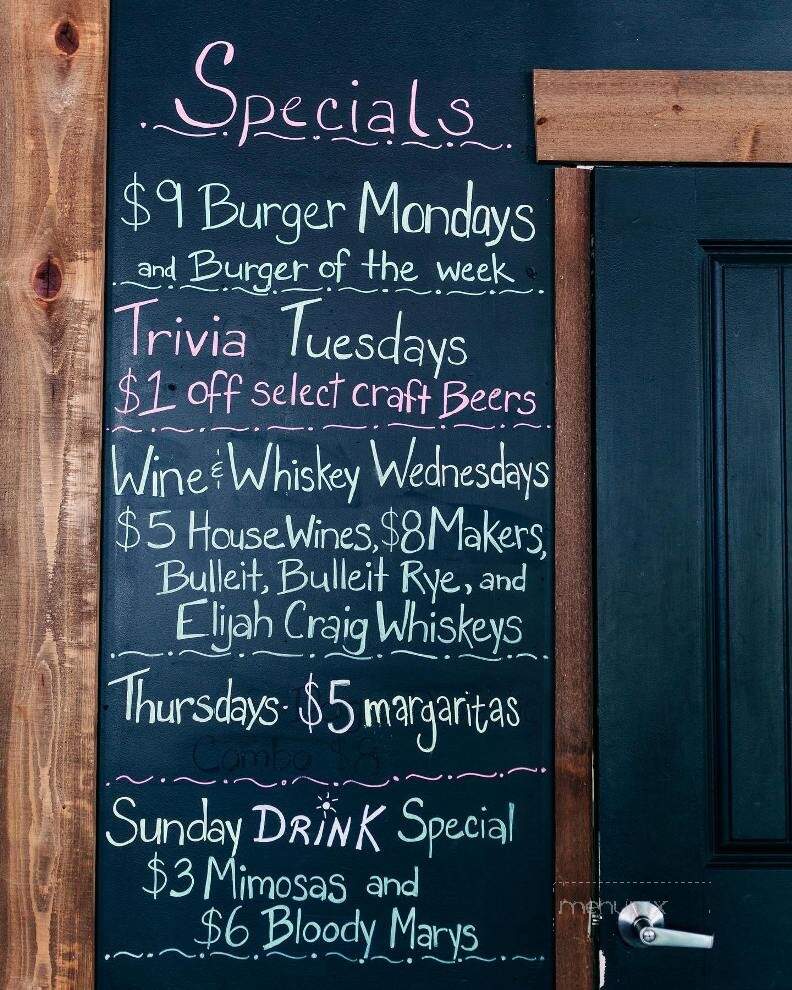 Specials
$9 Burger Mondays
and Burger of the week
Trivia Tuesdays
$1 off select craft Beers
Wine & Whiskey Wednesdays
$5 House Wines, $8 Makers,
Bulleit, Bulleit Rye, and
Elijah Craig Whiskeys
Thursdays - $5 margaritas
Combo $8
Sunday DRINK Special
$3 Mimosas and
$6 Bloody Marys